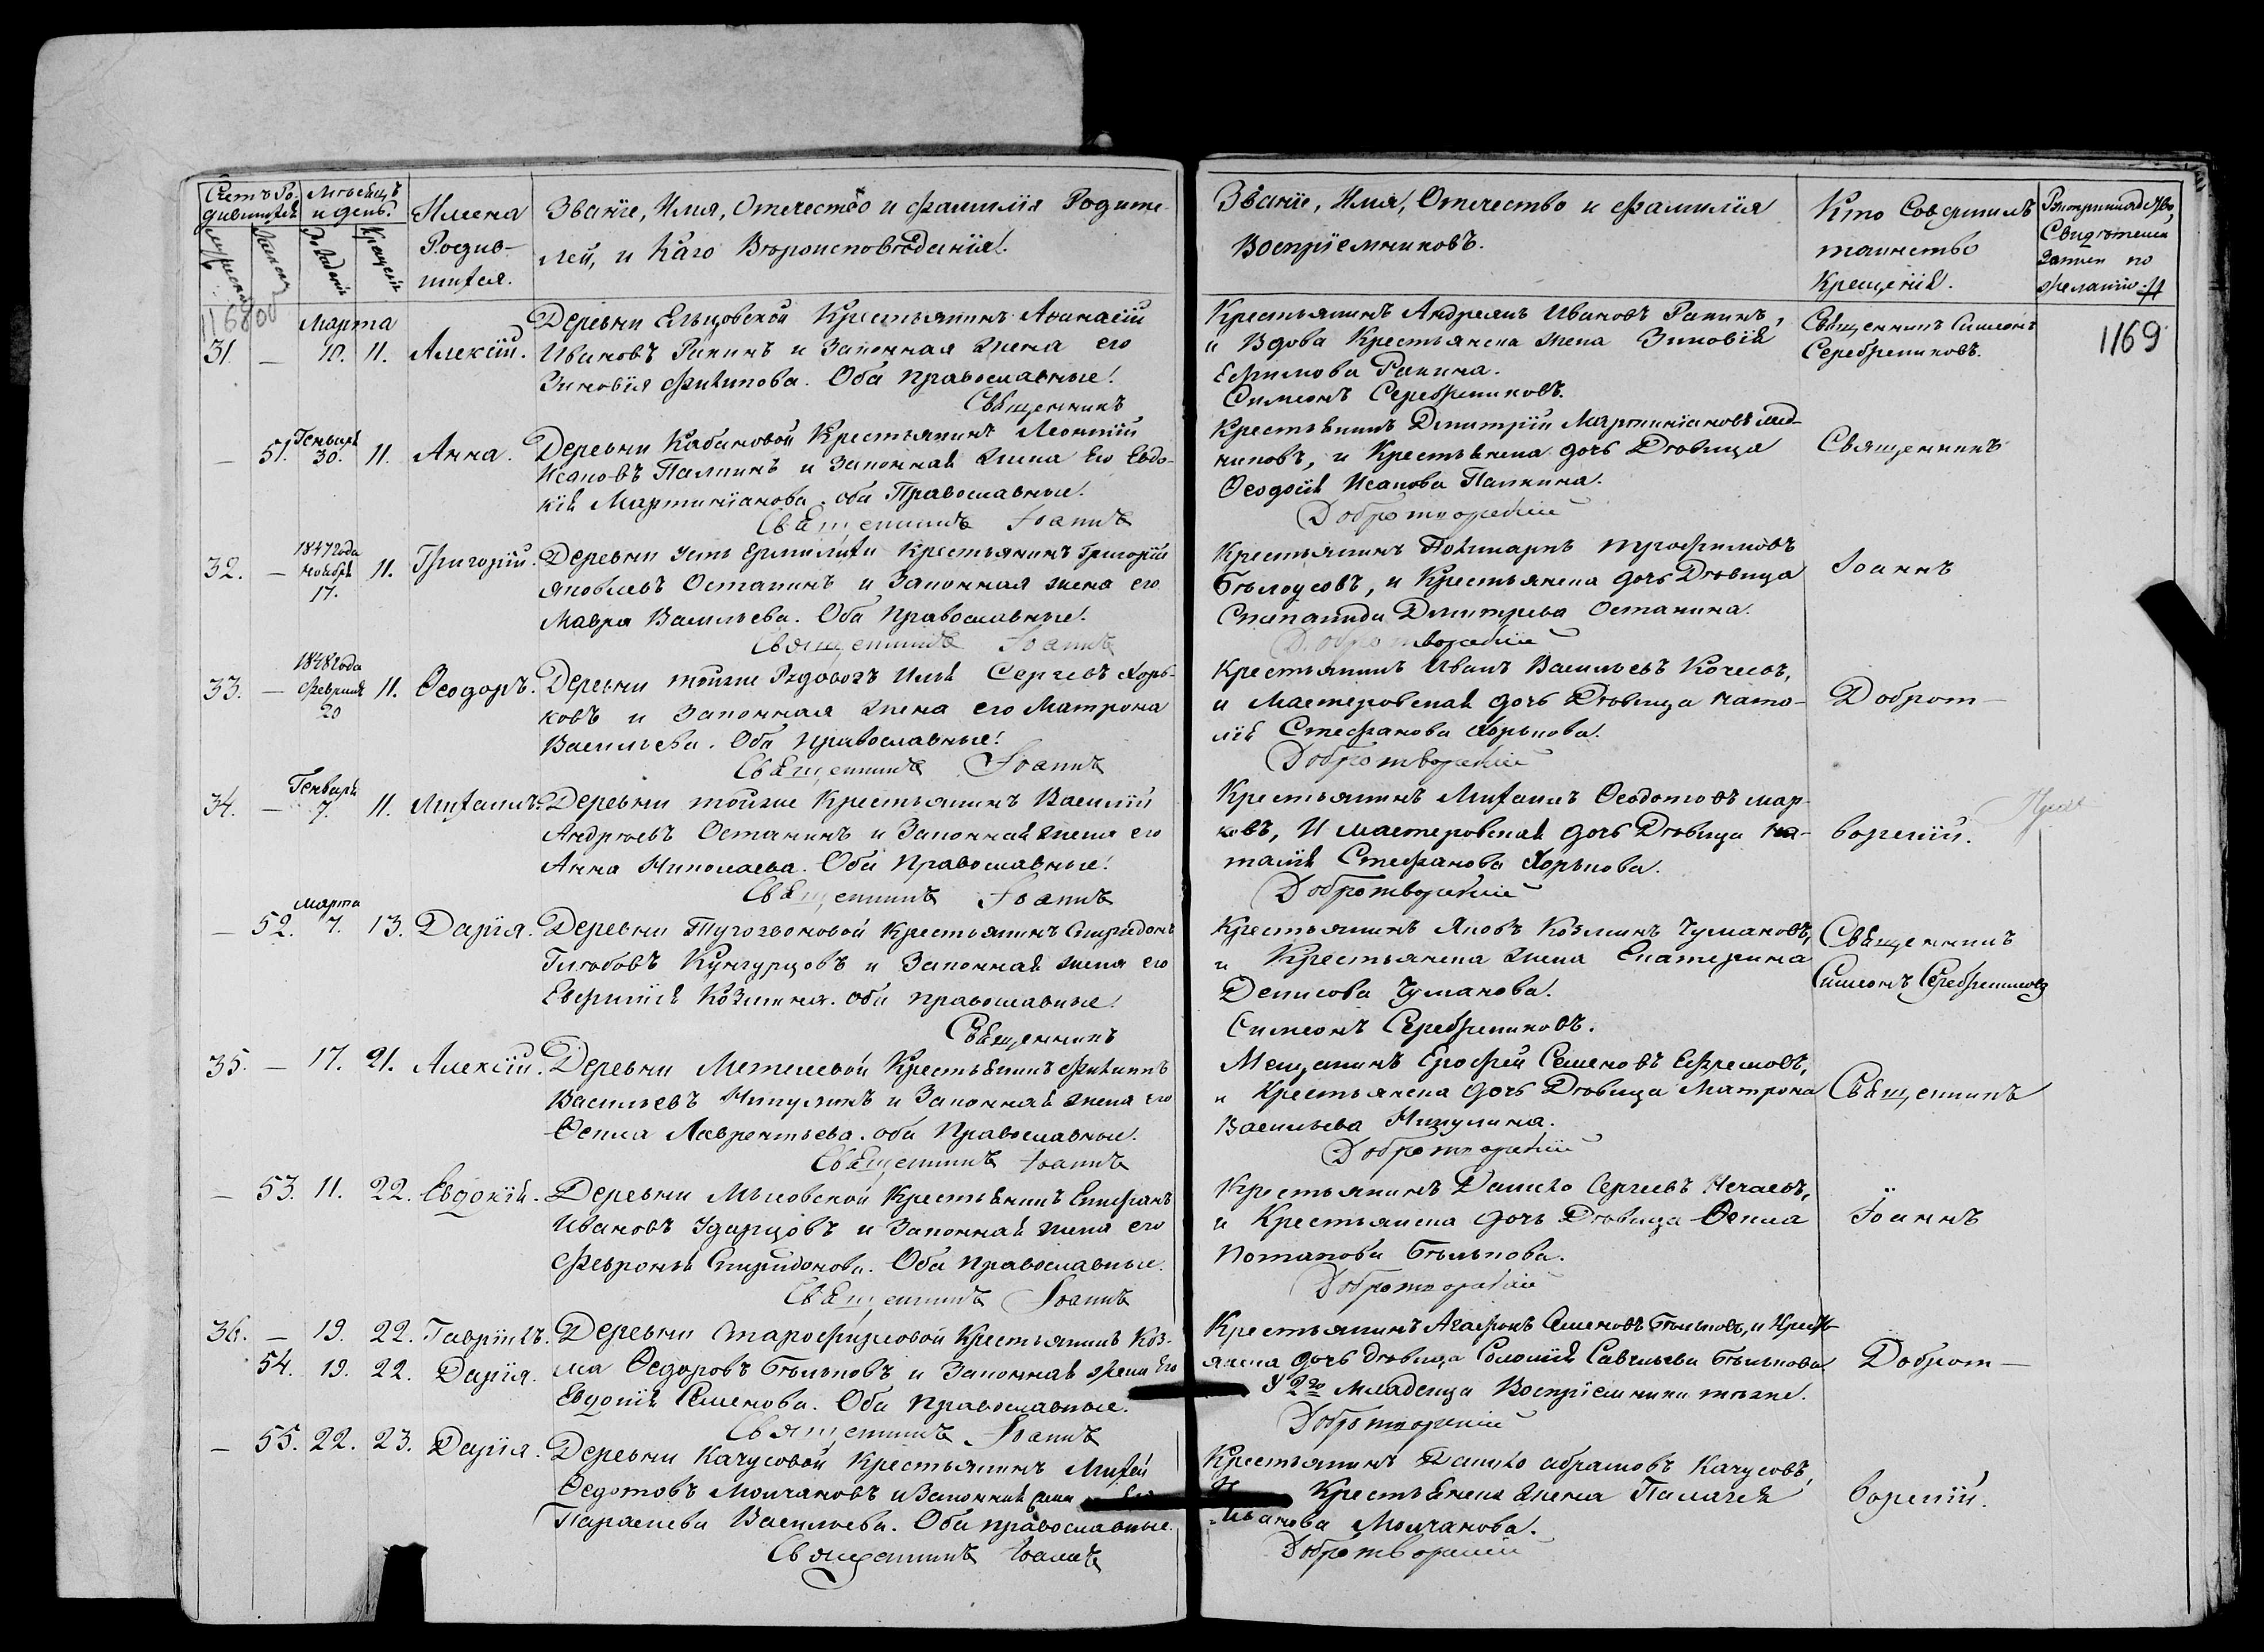 Счетъ Ро-
дившихся
Мѣсяцъ
и день.
Имена
Родив-
шихся.
Званіе, Имя, Отечество и Фамилія Родите-
лей, и Каго Вѣроисповѣданія.
Марта
31. — 10. 11. Алексій.
Деревни Ельцовской Крестьянинъ Аѳанасій
Ивановъ Ракинъ и Законная жена его
Зиновія Филипова. Оба православные.
Священникъ
— 51. Генваря 30. 11. Анна.
Деревни Кабановой Крестьянинъ Леонтій
Исаковъ Палкинъ и Законная жена Его Евдо-
кія Мартиніанова. оба Православные.
Священникъ Іоаннъ
32. — 1847 года ноября 17. 11. Григорій.
Деревни Усть Ермилихи Крестьянинъ Григорій
Яковлевъ Останинъ и Законная жена его
Мавра Васильева. Оба Православные.
Священникъ Іоаннъ
33. — 1848 года февраля 20 11. Ѳеодоръ.
Деревни тойже Рядовой Илья Сергеевъ Хорь-
ковъ и Законная жена его Матрона
Васильева. Оба православные.
Священникъ Іоаннъ
34. — Генваря 7. 11. Михаилъ.
Деревни тойже Крестьянинъ Василій
Андреевъ Останинъ и Законная жена его
Анна Николаева. Оба Православные.
Священникъ Іоаннъ
— 52. Марта 7. 13. Дарія.
Деревни Тугозвоновой Крестьянинъ Спиридонъ
Глѣбовъ Кунгурцовъ и Законная жена его
Евфимія Козмина. оба православные.
Священникъ
35. — 17. 21. Алексій.
Деревни Метелевой Крестьянинъ Филиппъ
Васильевъ Чипулинъ и Законная жена его
Ѳекла Лаврентьева. оба Православные.
Священникъ Іоаннъ
— 53. 11. 22. Евдокія.
Деревни Мысовской Крестьянинъ Епифанъ
Ивановъ Ударцовъ и Законная жена его
Февронья Спиридонова. Оба православные.
Священникъ Іоаннъ
36. — 19. 22. Гавріилъ.
54. 19. 22. Дарія.
Деревни Старофирсовой Крестьянинъ Коз-
ма Ѳедоровъ Бѣльковъ и Законная жена Его
Евдокія Семенова. Оба православные.
Священникъ Іоаннъ
— 55. 22. 23. Дарія.
Деревни Качусовой Крестьянинъ Михей
Ѳедотовъ Молчановъ и Законная жена Его
Параскева Васильева. Оба православные.
Священникъ Іоаннъ
Званіе, Имя, Отечество и Фамилія
Воспріемниковъ.
Кто Совершилъ
таинство
Крещенія.
Рукоприкладство
Свидѣтелей
записи по
желанію.
1169
Крестьянинъ Андреянъ Ивановъ Ракинъ,
и Вдова Крестьянска жена Зиновія
Ефимова Ракина.
Симеонъ Серебрениковъ.
Священникъ Симеонъ
Серебрениковъ.
Крестьянинъ Димитрій Мартиніановъ
и Крестьянска дочь Дѣвица
Ѳеодосія Исакова Палкина.
Добротворскій
Священникъ
Крестьянинъ Поликарпъ Трофимовъ
Бѣлоусовъ, и Крестьянска дочь Дѣвица
Степанида Дмитрева Останина.
Добротворскій
Іоаннъ
Крестьянинъ Иванъ Васильевъ Кочевъ,
и Мастеровская дочь Дѣвица Ната-
лія Стефанова Хорькова.
Добротворскій
Доброт—
Крестьянинъ Михаилъ Ѳеодотовъ Мар-
ковъ, И мастеровская дочь Дѣвица На-
талія Стефанова Хорькова.
Добротворскій
ворскій.
Крестьянинъ Яковъ Козминъ Чумановъ,
и Крестьянска жена Екатерина
Денисова Чуманова.
Симеонъ Серебрениковъ.
Священникъ
Симеонъ Серебрениковъ
Мещанинъ Ерофей Семеновъ Ефремовъ,
и Крестьянска дочь Дѣвица Матрона
Васильева Чипулина.
Добротворскій
Священникъ
Крестьянинъ Данило Сергеевъ Нечаевъ,
и Крестьянска дочь Дѣвица Ѳекла
Потапова Бѣлькова.
Добротворскій
Іоаннъ
Крестьянинъ Агафонъ Семеновъ Бѣльковъ, и Кресть-
янска дочь дѣвица Соломія Савельева Бѣлькова
У 2го младенца Воспріемники тѣже.
Добротворскій
Доброт—
Крестьянинъ Данило Абрамовъ Качусовъ,
Крестьянска жена Палагея
Иванова Молчанова.
Добротворскій
ворскій.